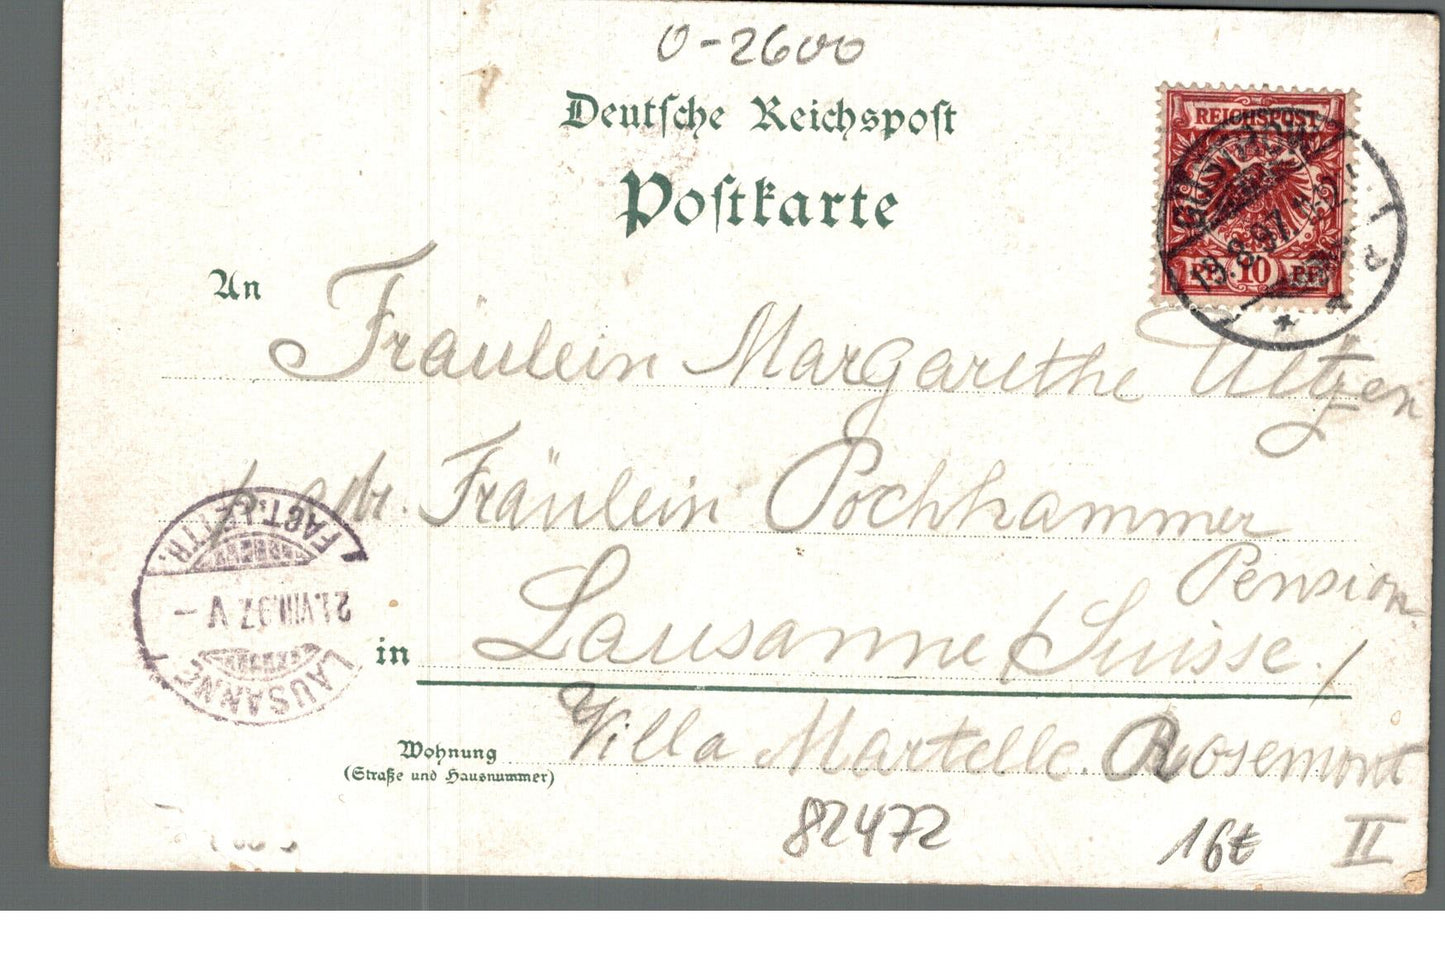 0-2600
Deutsche Reichspost
Postkarte
REICHSPOST
PF 10 PF
GÜSTROW
19.8.97. 11-12
An Fräulein Margarethe Ultzen
p. adr. Fräulein Pochhammer
Pension
in Lausanne / Suisse. /
Wohnung
(Straße und Hausnummer)
Villa Martelle. Rosemont
82472
16t
II
FACT. LETTR.
21.VIII.97. V -
LAUSANNE